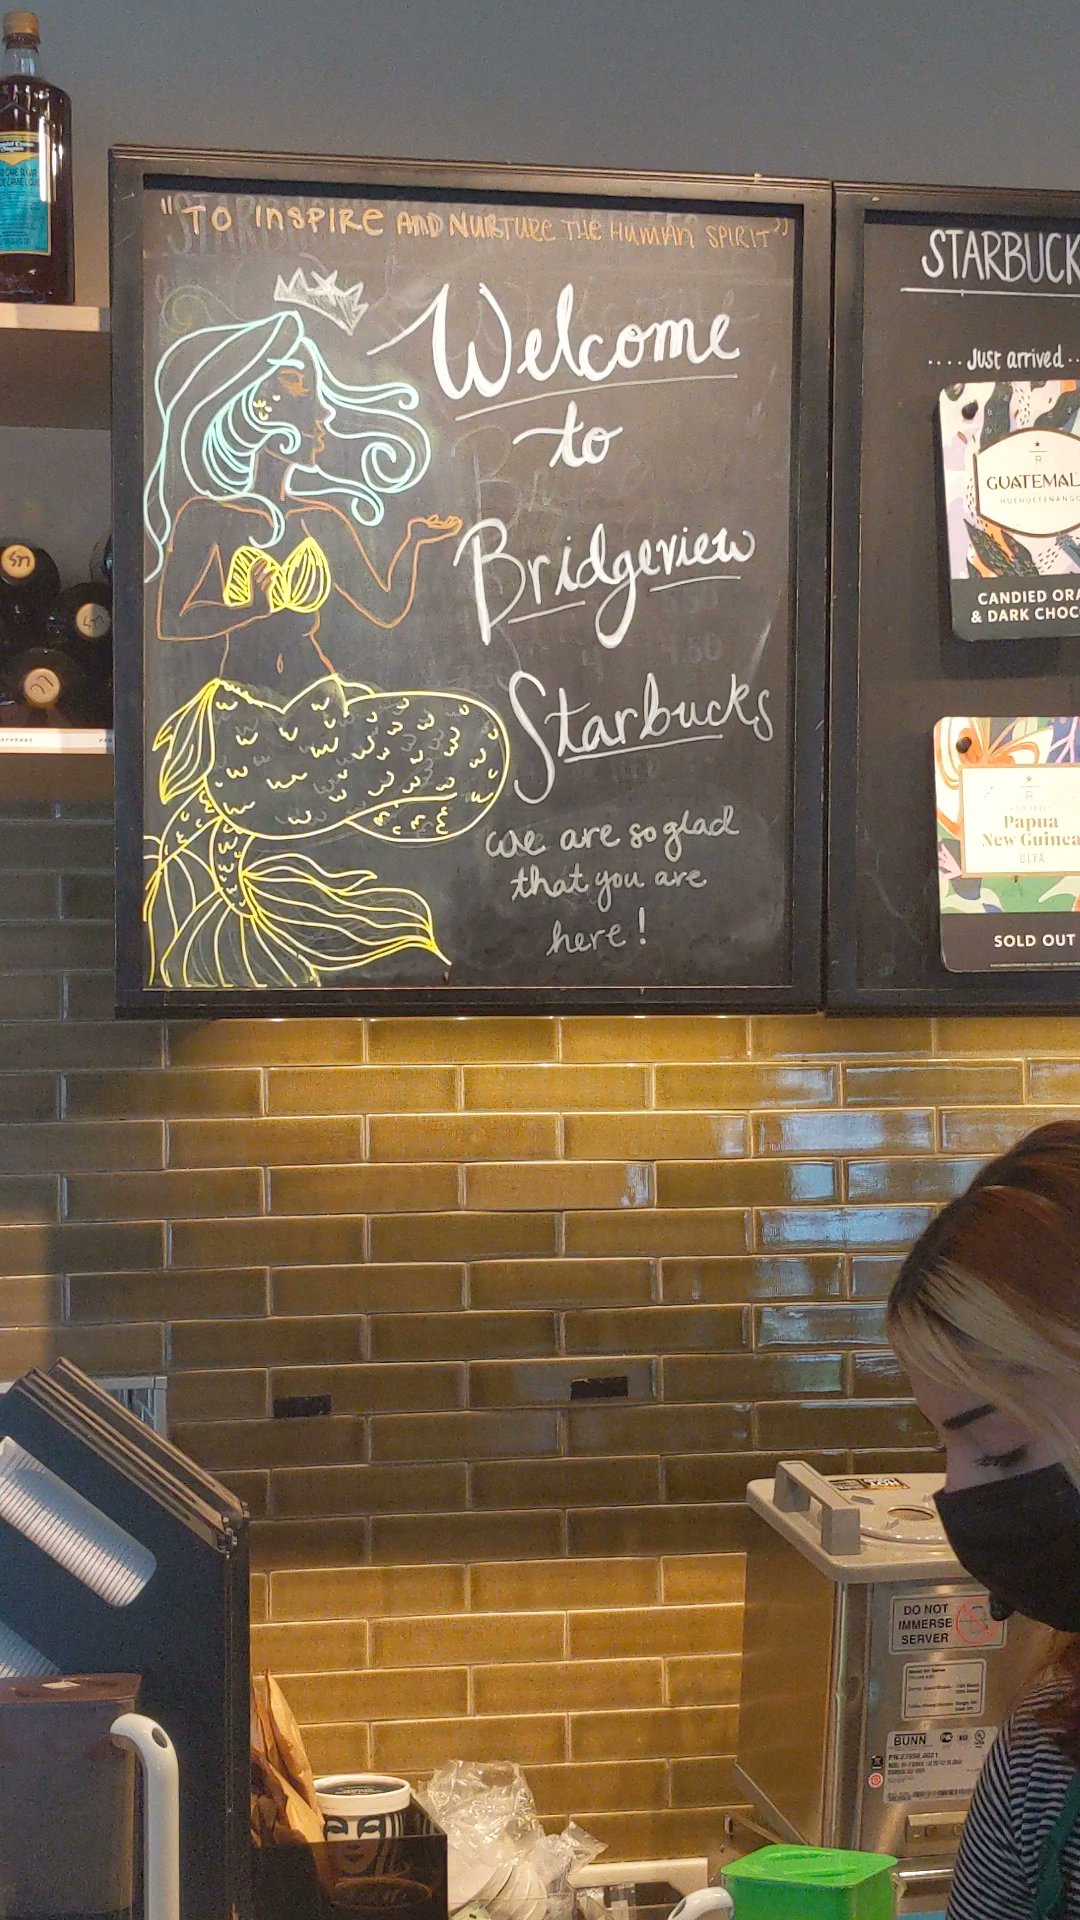 "TO INSPIRE AND NURTURE THE HUMAN SPIRIT"
Welcome
to
Bridgeview
Starbucks
we are so glad
that you are
here!
STARBUCK
....Just arrived..
R
GUATEMAL
HUEHUETENANGO
CANDIED ORA
& DARK CHOC
R
Papua
New Guinea
ULYA
SOLD OUT
DO NOT
IMMERSE
SERVER
BUNN